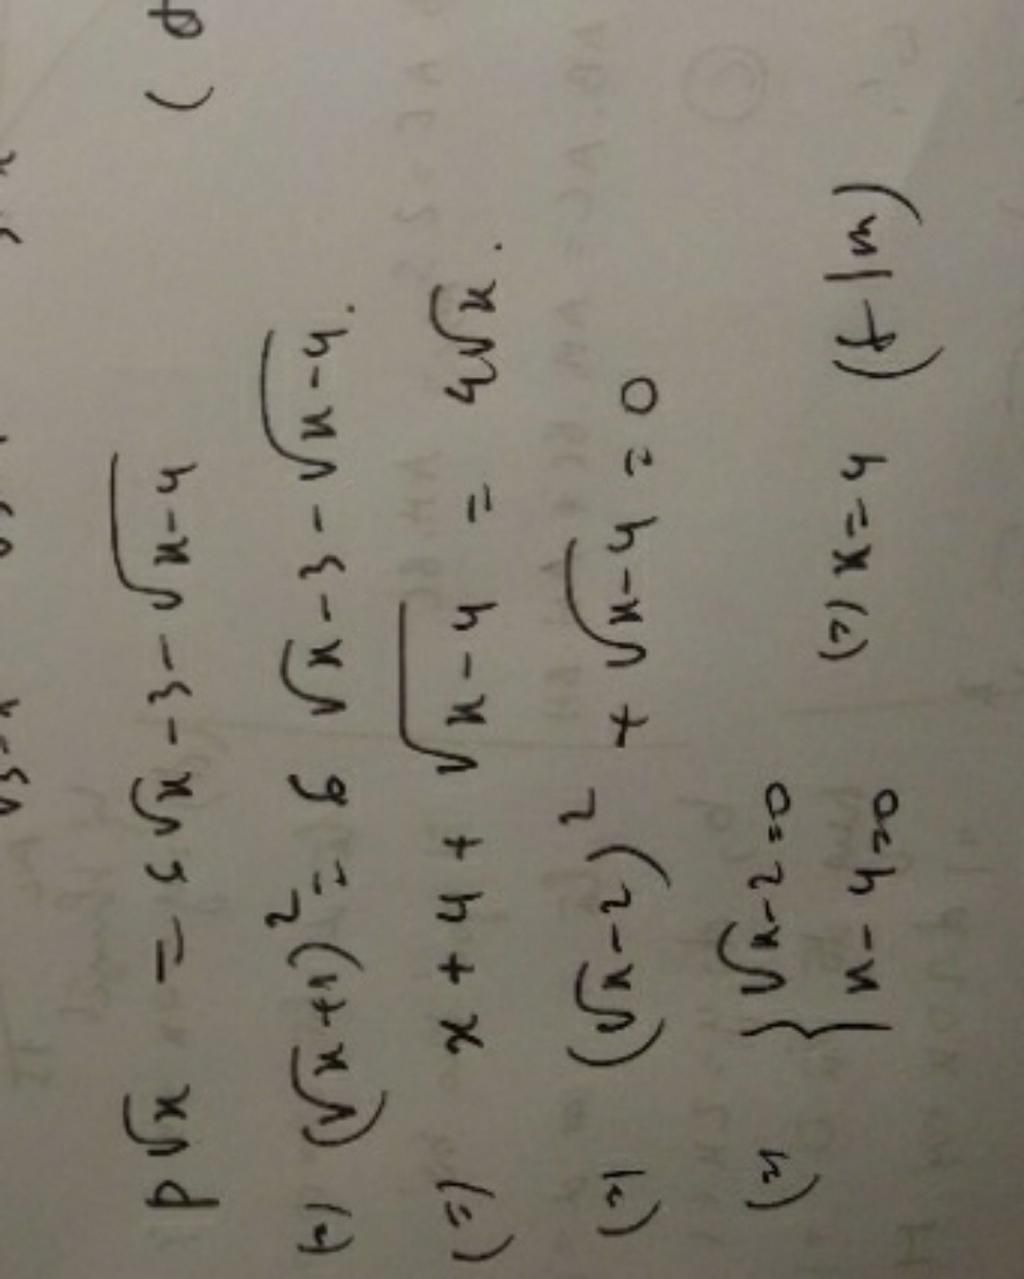 P√x = 6√x - 3 - √x-4
(=) (√x+1)² = 6√x-3-√x-4.
(=) x+4+√x-4 = 4√x.
(=) (√x-2)² + √x-4 = 0
(=) { √x-2=0
x-4=0 (=) x=4 (t/m)